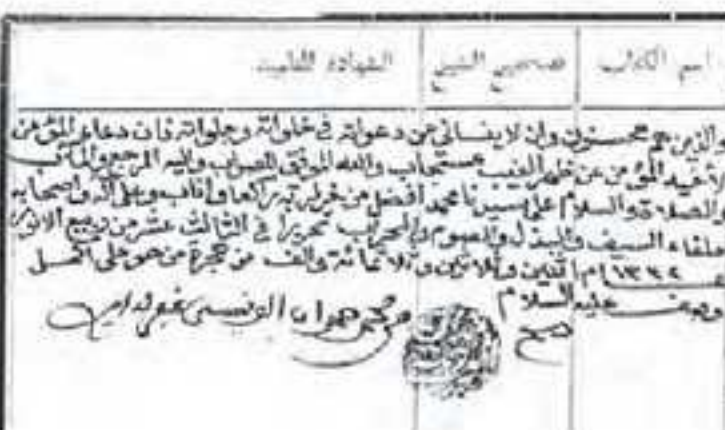 اسم الكتاب تصحيح الشيخ الشهادة للتلميذ
والذين هم محسنون وان لا ينساني من دعواته في خلواته وجلواته فان دعاء المؤمن
لأخيه المؤمن عن ظهر الغيب مستجاب والله الموفق للصواب واليه المرجع والمآب
والصلاة والسلام على سيدنا محمد افضل من خر لربه راكعا واناب وعلى آله واصحابه
خلفاء السيف والبذل والصوم والمحراب تحريرا في الثالث عشر من ربيع الانور
١٣٣٢ ام اثنين وثلاثين وثلاثمائة والف من هجرة من هو على اكمل
وصف عليه السلام
صح محمد حمدان الونيسي غفر له امين